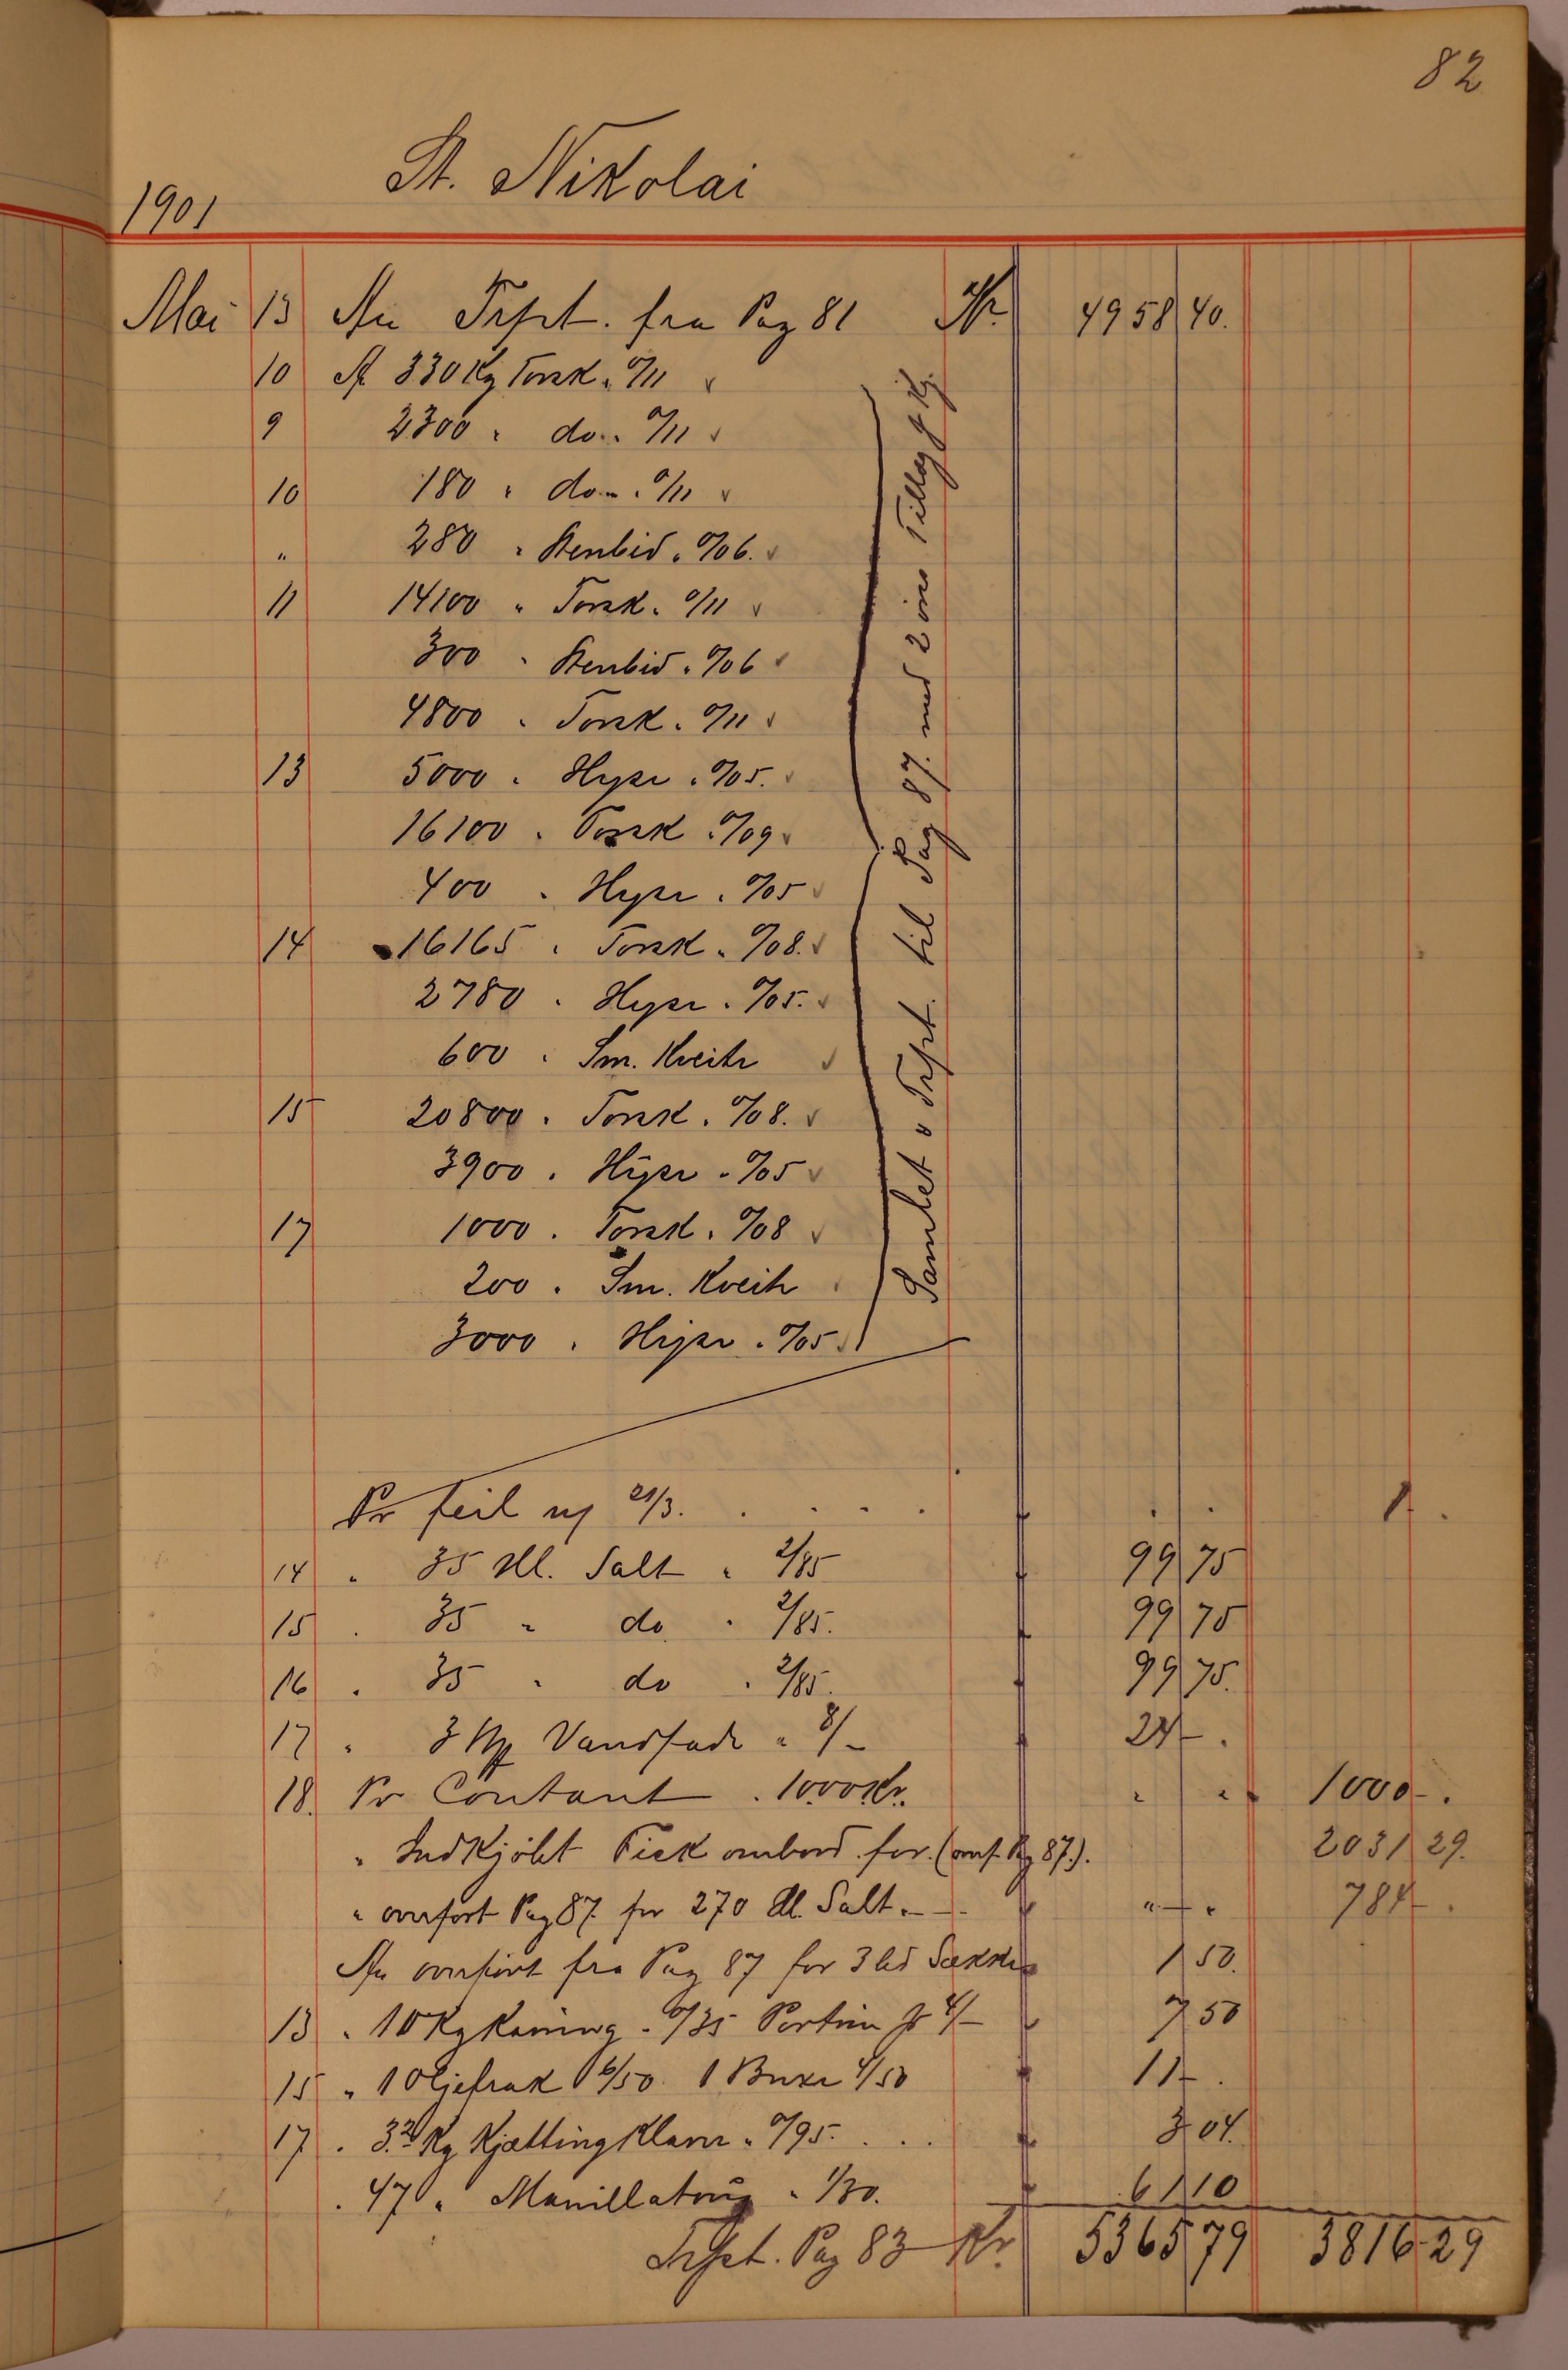 82
St. Nikolai
1901
Mai 13 An Trspt. fra Pag 81 Kr. 4958 40.
10 Af 330 Kg Torsk " 0/11 v
9 2300 " do " 0/11 v
10 180 " do " 0/11 v
" 280 " Stenbid " 0/06. v
11 14100 " Torsk " 0/11 v
300 " Stenbid " 0/06 v
4800 " Torsk " 0/11 v
13 5000 " Hyse " 0/05. v
16100 " Torsk " 0/09 v
400 " Hyse " 0/05 v
14 16165 " Torsk " 0/08. v
2780 " Hyse " 0/05. v
600 " Sm. Kveite v
15 20800 " Torsk " 0/08. v
3900 " Hyse " 0/05 v
17 1000 " Torsk " 0/08 v
200 " Sm. Kveite
3000 " Hyse " 0/05 v
Samlet & Trspt. til Pag 87. med 2 øres Tillæg
Pr feil 21/3. . . . . 1 .
14 " 35 Hl. Salt " 2/85 99 75
15 " 35 " do " 2/85. 99 75
16 " 35 " do " 2/85. 99 75.
17 " 3 Vandfade " 8/- 24 - .
18. Pr Contant . 1000 Kr. " " 1000 - .
" Indkjøbt Fisk ombord for. (omf. Pag 87.). 2031 29.
" overført Pag 87. for 270 Hl. Salt. - - " " 784 - .
An overført fra Pag 87 for 3 Sække 1 50.
13 " 10 Kg " 0/35 4/- 7 50
15 " 1 Oljefrak 6/50. 1 Buxe 4/50 11 - .
17 " 3.2 Kg Kjættingklaver " 0/95. . . . 3 04.
" 47 " Manillatoug " 1/30. 61 10
Trspt. Pag 83 Kr. 5365 79 3816 29